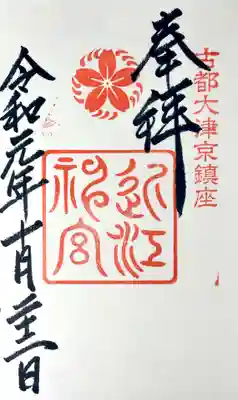 古都大津京鎮座
奉拝
近江神宮
令和元年十一月二十三日